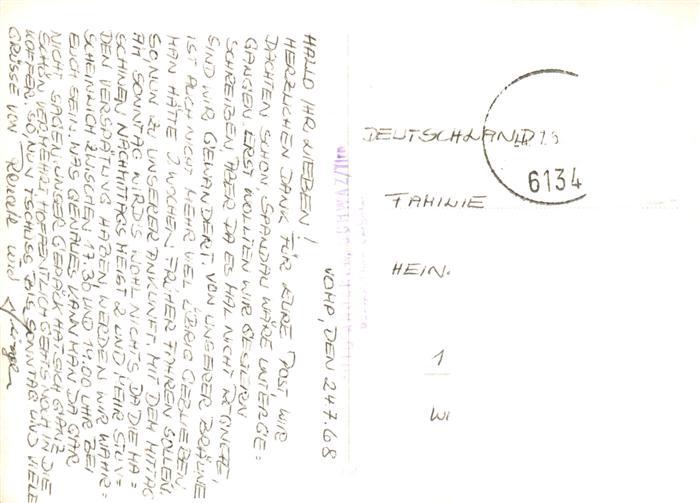 VOMP, DEN 24.7.68
HALLO IHR LIEBEN!
HERZLICHEN DANK FÜR EURE POST WIR
DACHTEN SCHON, SPANDAU WÄRE UNTERGE=
GANGEN. ERST WOLLTEN WIR GESTERN
SCHREIBEN ABER DA ES MAL NICHT REGNETE,
SIND WIR GEWANDERT. VON UNSERER BRÄUNE
IST AUCH NICHT MEHR VIEL ÜBRIG GEBLIEBEN.
MAN HÄTE 2 WOCHEN FRÜHER FAHREN SOLLEN.
SO, NUN ZU UNSERER ANKUNFT. MIT DEM MITTAG
AM SONNTAG WIRD'S WOHL NICHTS DA DIE MA=
SCHINEN NACHMITTAGS MEIST 2 UND MEHR STUN=
DEN VERSPÄTUNG HABEN WERDEN WIR WAHR=
SCHEINLICH ZWISCHEN 17.30 UND 19.00 UHR BEI
EUCH SEIN. WAS GENAUES KANN MAN JA GAR
NICHT SAGEN. UNSER GEPÄCK HAT SICH GANZ
SCHÖN VERMEHRT, HOFFENTLICH GEHTS NOCH IN DIE
KOFFER. SO, NUN TSCHÜSS BIS SONNTAG UND VIELE
GRÜSSE VON
DEUTSCHLAND
6134
FAMILIE
HEIN.
1
WI